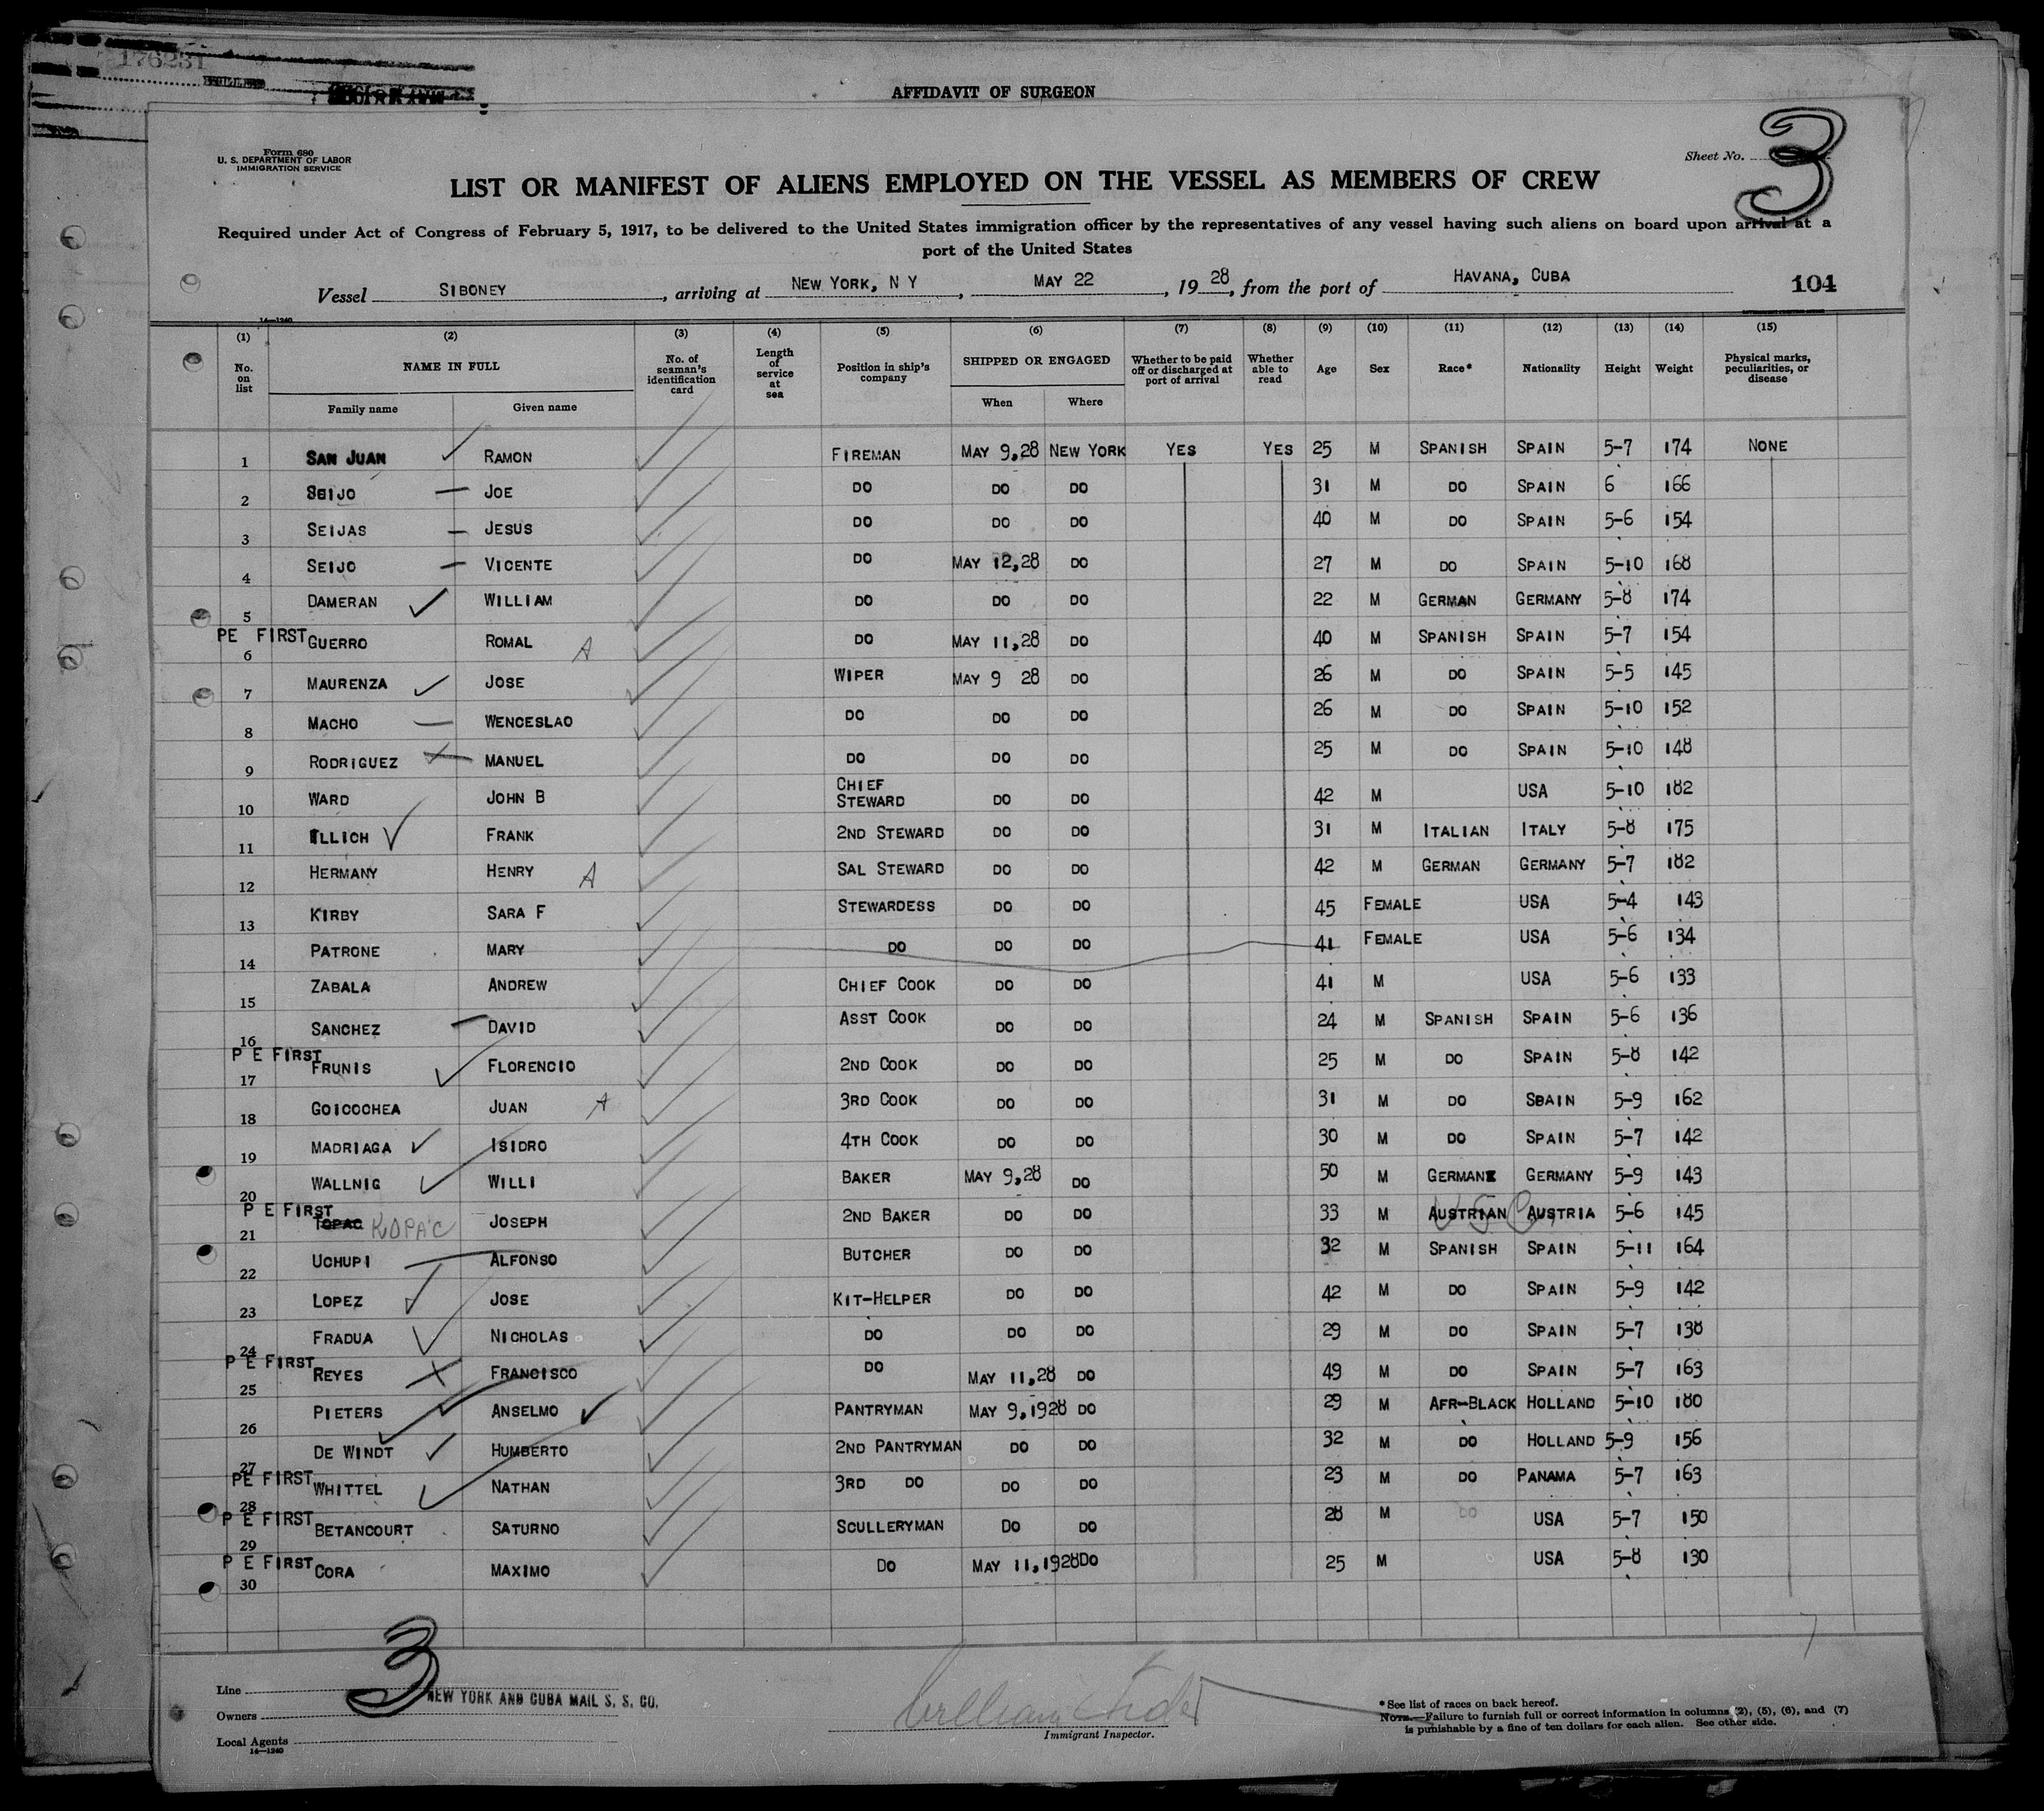 176231
AFFIDAVIT OF SURGEON
Form 680
U. S. DEPARTMENT OF LABOR
IMMIGRATION SERVICE
Sheet No. 3
LIST OR MANIFEST OF ALIENS EMPLOYED ON THE VESSEL AS MEMBERS OF CREW
Required under Act of Congress of February 5, 1917, to be delivered to the United States immigration officer by the representatives of any vessel having such aliens on board upon arrival at a
port of the United States
Vessel SIBONEY, arriving at NEW YORK, N Y, MAY 22, 1928, from the port of HAVANA, CUBA 104
14—1240
(1) (2) (3) (4) (5) (6) (7) (8) (9) (10) (11) (12) (13) (14) (15)
No. on list NAME IN FULL Family name Given name No. of seaman's identification card Length of service at sea Position in ship's company SHIPPED OR ENGAGED When Where Whether to be paid off or discharged at port of arrival Whether able to read Age Sex Race* Nationality Height Weight Physical marks, peculiarities, or disease
1 SAN JUAN RAMON FIREMAN MAY 9,28 NEW YORK YES YES 25 M SPANISH SPAIN 5-7 174 NONE
2 SEIJO JOE DO DO DO 31 M DO SPAIN 6 166
3 SEIJAS JESUS DO DO DO 40 M DO SPAIN 5-6 154
4 SEIJO VICENTE DO MAY 12,28 DO 27 M DO SPAIN 5-10 168
5 DAMERAN WILLIAM DO DO DO 22 M GERMAN GERMANY 5-8 174
PE FIRST
6 GUERRO ROMAL A DO MAY 11,28 DO 40 M SPANISH SPAIN 5-7 154
7 MAURENZA JOSE WIPER MAY 9 28 DO 26 M DO SPAIN 5-5 145
8 MACHO WENCESLAO DO DO DO 26 M DO SPAIN 5-10 152
9 RODRIGUEZ MANUEL DO DO DO 25 M DO SPAIN 5-10 148
10 WARD JOHN B CHIEF STEWARD DO DO 42 M USA 5-10 182
11 ILLICH FRANK 2ND STEWARD DO DO 31 M ITALIAN ITALY 5-8 175
12 HERMANY HENRY A SAL STEWARD DO DO 42 M GERMAN GERMANY 5-7 182
13 KIRBY SARA F STEWARDESS DO DO 45 FEMALE USA 5-4 143
14 PATRONE MARY DO DO DO 41 FEMALE USA 5-6 134
15 ZABALA ANDREW CHIEF COOK DO DO 41 M USA 5-6 133
16 SANCHEZ DAVID ASST COOK DO DO 24 M SPANISH SPAIN 5-6 136
P E FIRST
17 FRUNIS FLORENCIO 2ND COOK DO DO 25 M DO SPAIN 5-8 142
18 GOICOCHEA JUAN A 3RD COOK DO DO 31 M DO SPAIN 5-9 162
19 MADRIAGA ISIDRO 4TH COOK DO DO 30 M DO SPAIN 5-7 142
20 WALLNIG WILLI BAKER MAY 9,28 DO 50 M GERMAN GERMANY 5-9 143
P E FIRST
21 TOPAC KOPAC JOSEPH 2ND BAKER DO DO 33 M AUSTRIAN AUSTRIA USC 5-6 145
22 UCHUPI ALFONSO BUTCHER DO DO 32 M SPANISH SPAIN 5-11 164
23 LOPEZ JOSE KIT-HELPER DO DO 42 M DO SPAIN 5-9 142
24 FRADUA NICHOLAS DO DO DO 29 M DO SPAIN 5-7 138
P E FIRST
25 REYES FRANCISCO DO MAY 11,28 DO 49 M DO SPAIN 5-7 163
26 PIETERS ANSELMO PANTRYMAN MAY 9,1928 DO 29 M AFR-BLACK HOLLAND 5-10 180
27 DE WINDT HUMBERTO 2ND PANTRYMAN DO DO 32 M DO HOLLAND 5-9 156
PE FIRST
28 WHITTEL NATHAN 3RD DO DO DO 23 M DO PANAMA 5-7 163
P E FIRST
29 BETANCOURT SATURNO SCULLERYMAN DO DO 28 M DO USA 5-7 150
P E FIRST
30 CORA MAXIMO DO MAY 11,1928 DO 25 M USA 5-8 130
3
Line
NEW YORK AND CUBA MAIL S. S. CO.
Owners
Local Agents
14—1240
William
Immigrant Inspector.
*See list of races on back hereof.
NOTE.—Failure to furnish full or correct information in columns (2), (5), (6), and (7)
is punishable by a fine of ten dollars for each alien. See other side.